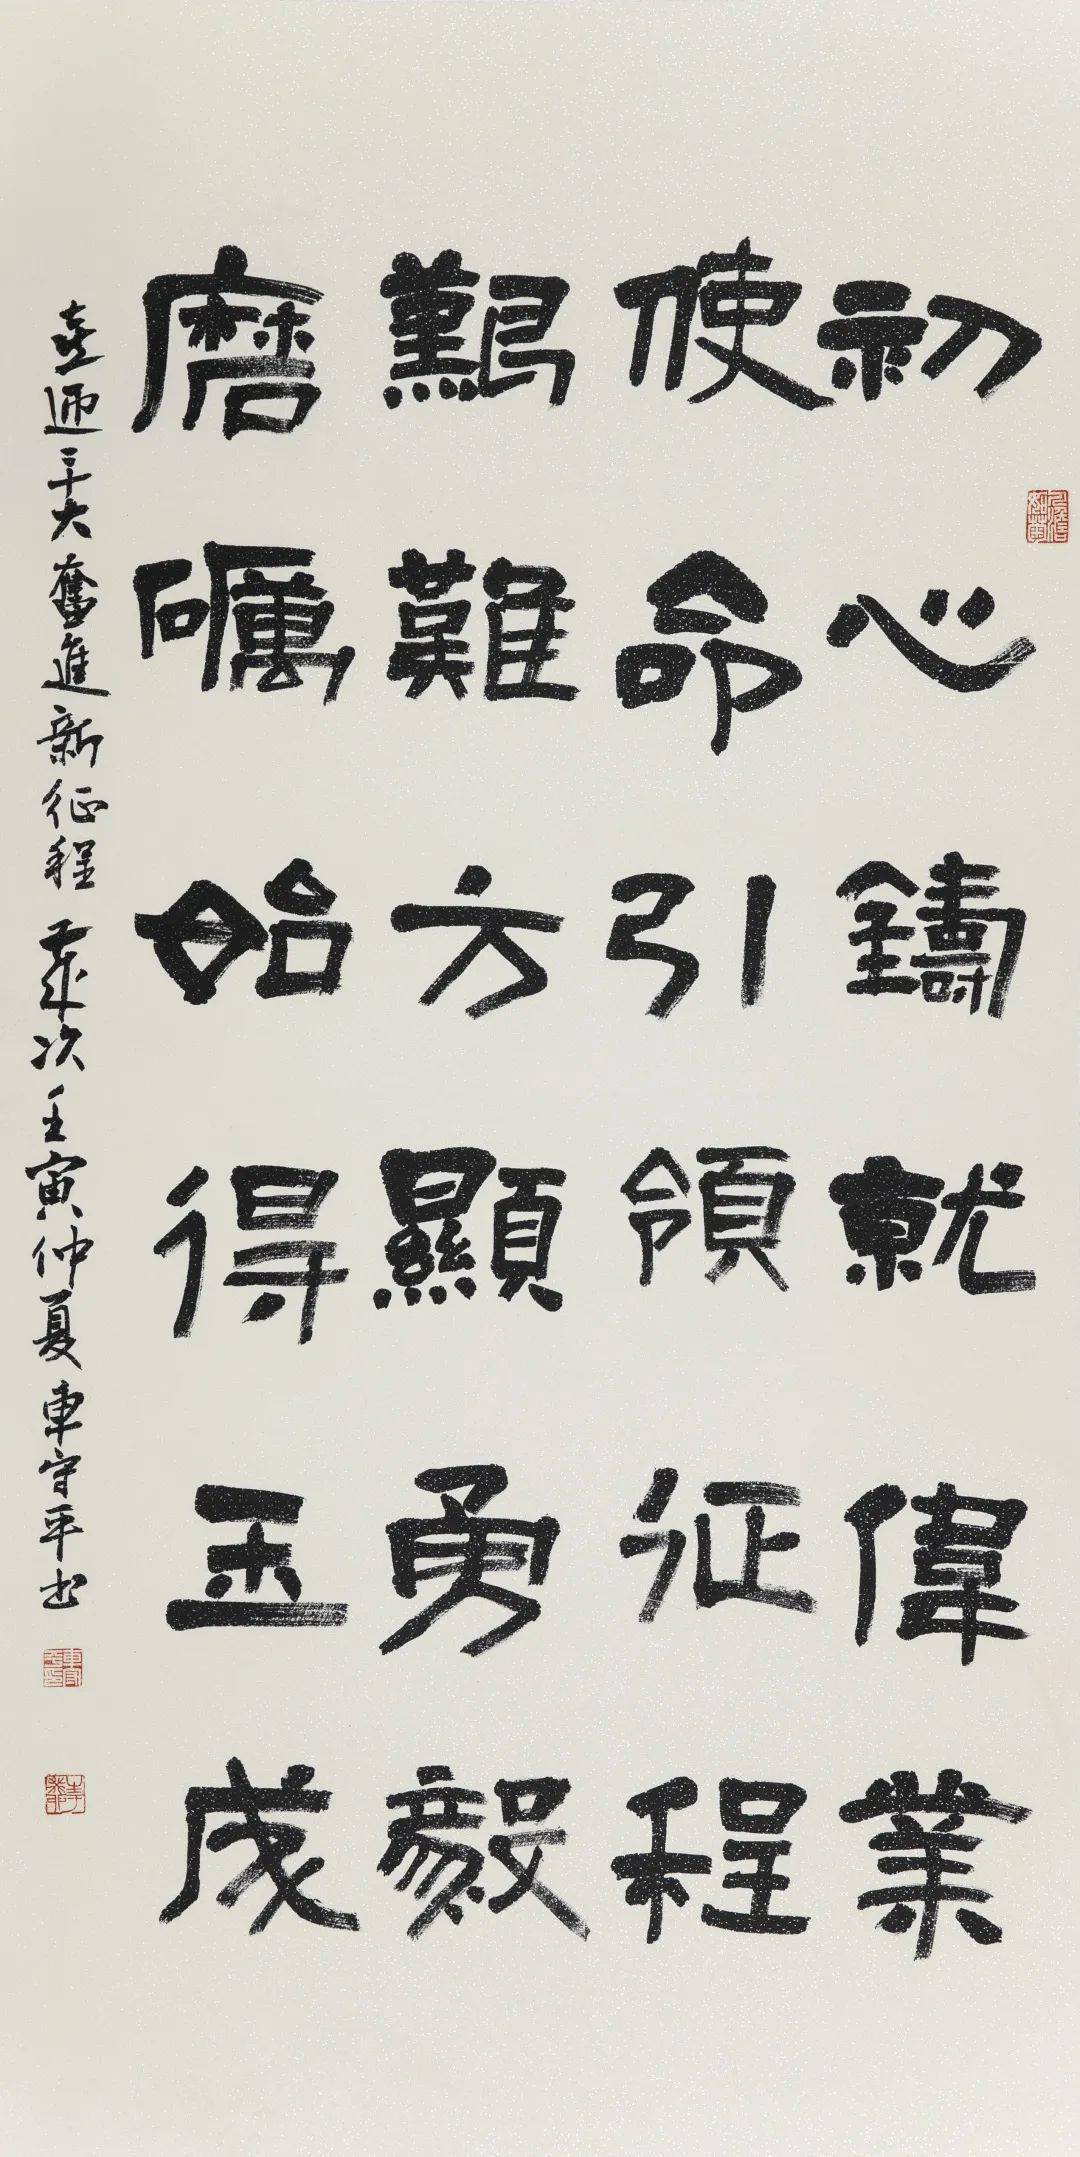 初心鑄就偉業
使命引領征程
艱難方顯勇毅
磨礪始得玉成
喜迎二十大奮進新征程歲次壬寅仲夏車守平書